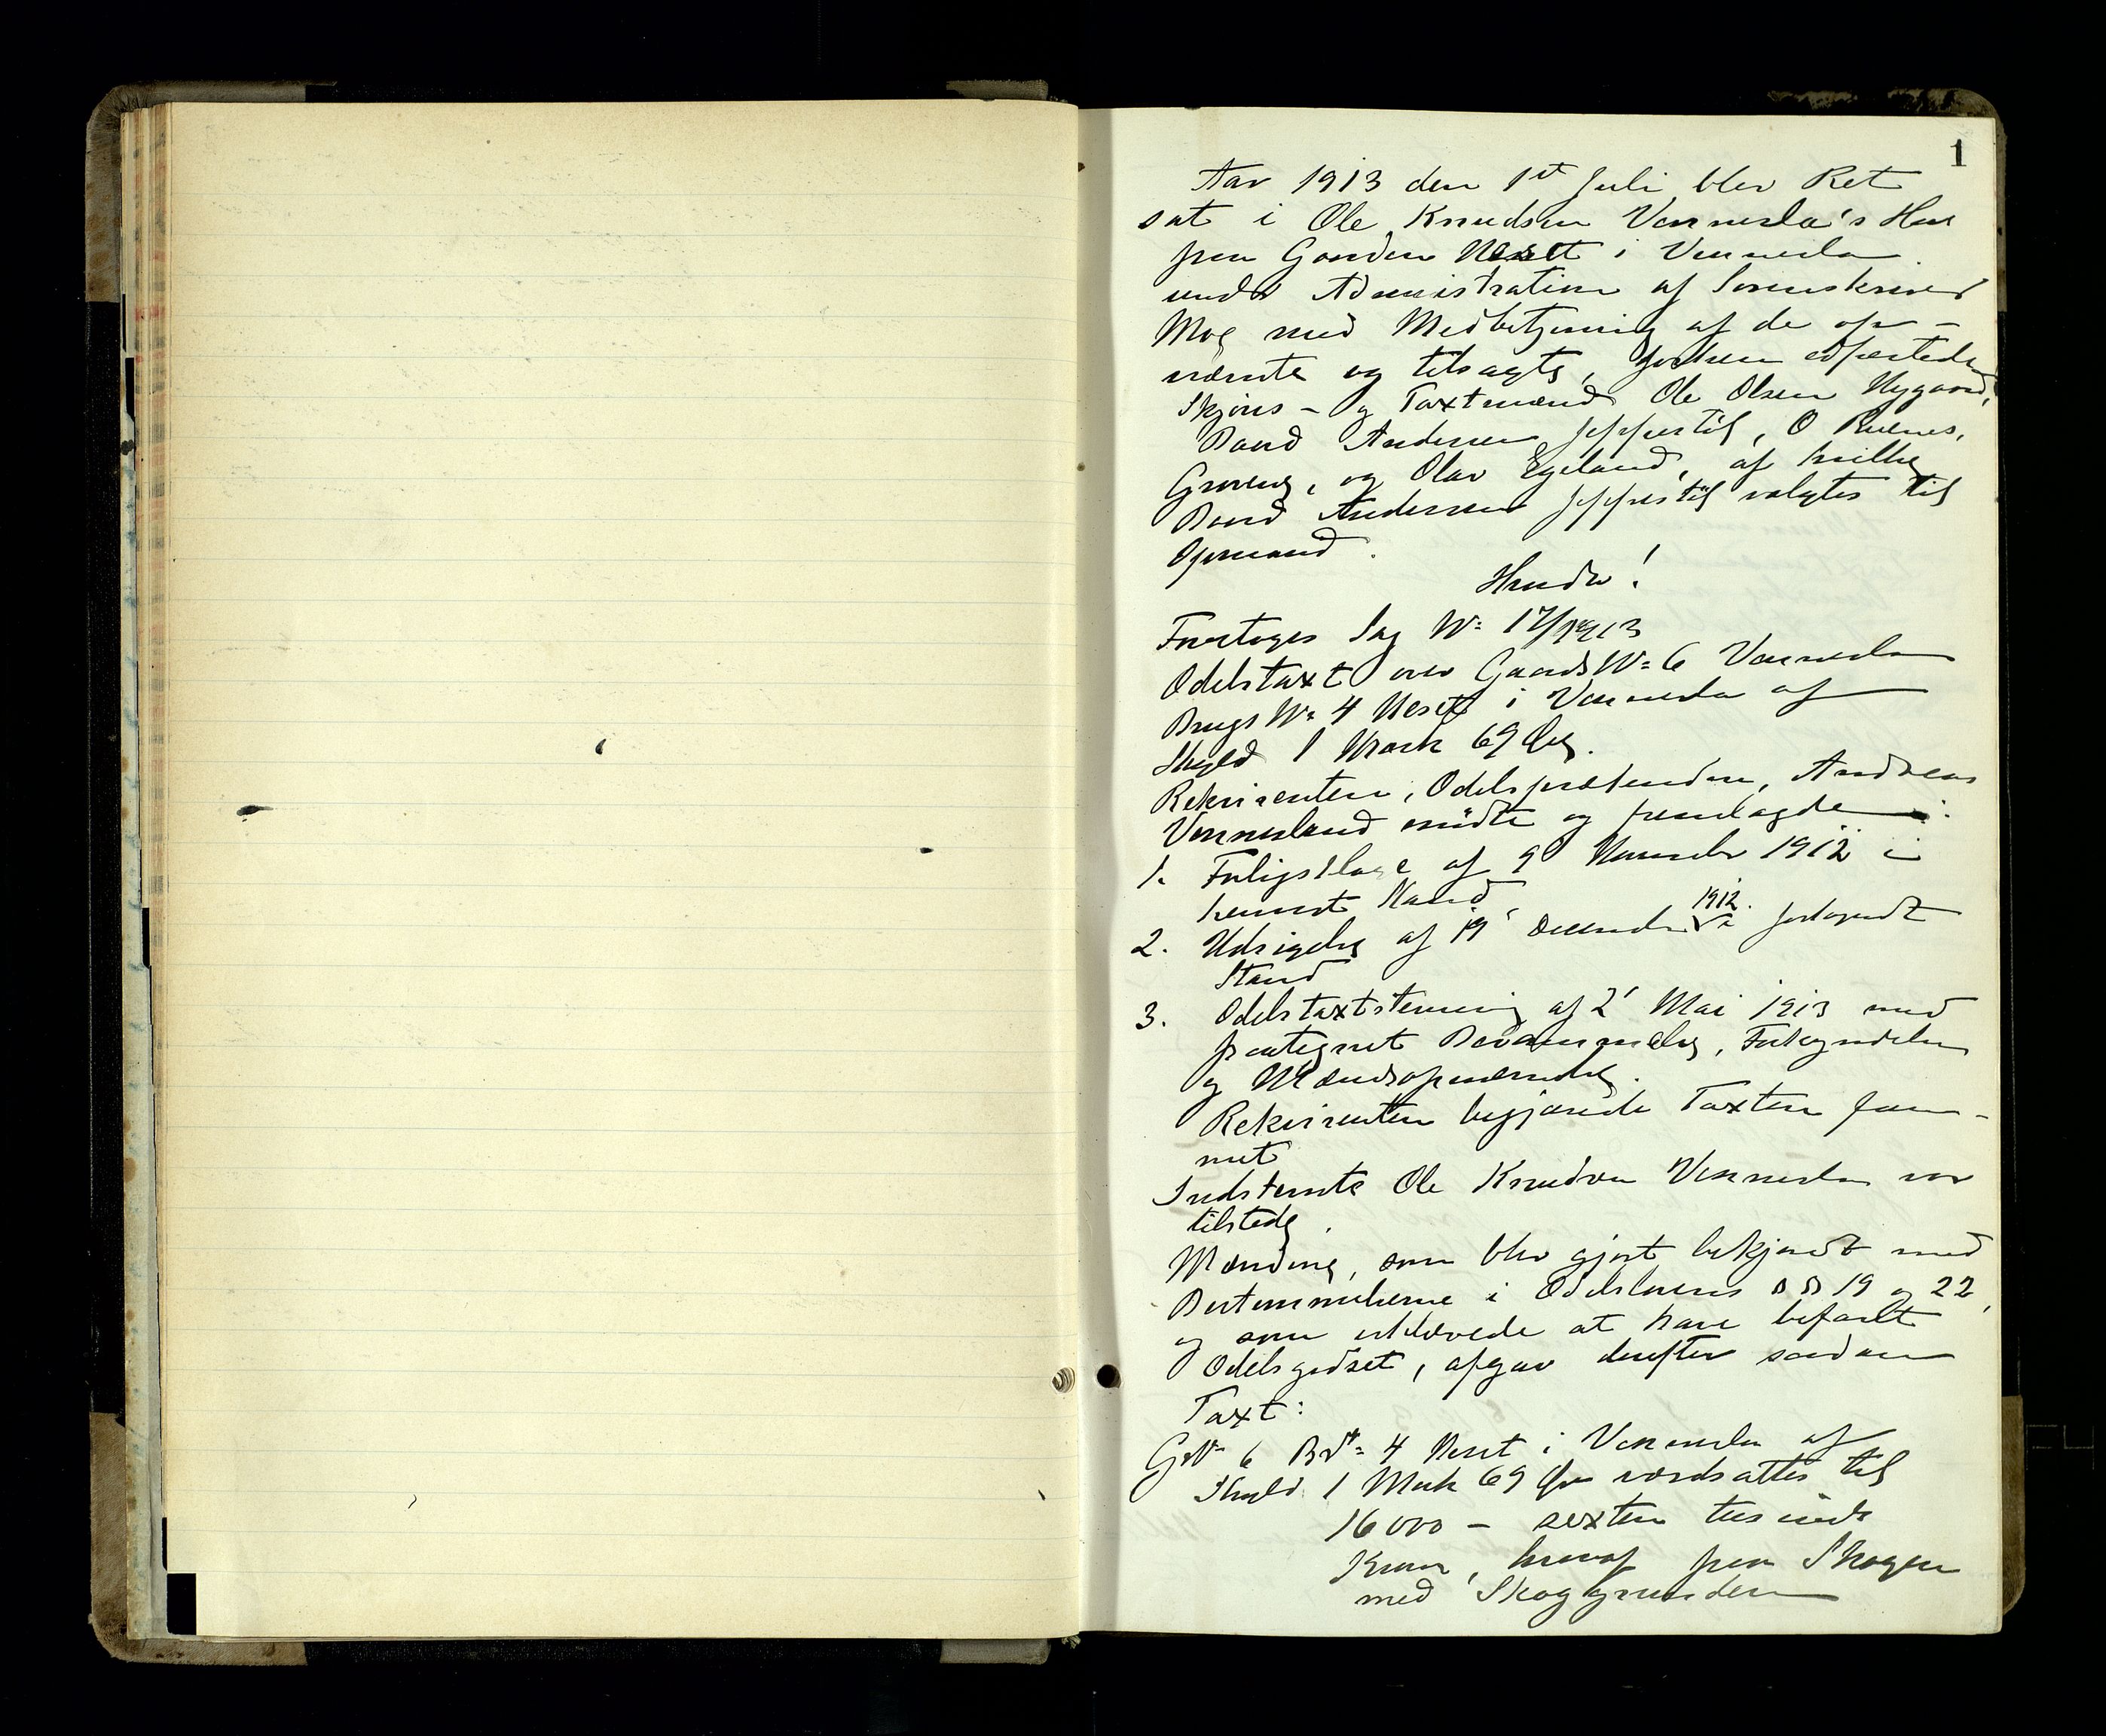 1
Aar 1913 den 1st Juli blev Ret
sat i Ole Knudsen Vennesla's Hus
paa Gaarden Neset i Vennesla
under Administration af Sorenskriver
Moe med Medbetjening af de op-
nævnte og tilsagte, forhen edfæstede
Skjøns- og Taxtmænd Ole Olsen Nygaard,
Baard Andersen Jeppestøl, O Ruenes,
og Olav Egeland, af hvilke
Baard Andersen Jeppestøl valgtes til
Opmand.
Hvorda!
Foretoges Sag No 17/1913
Odelstaxt over Gaards No 6 Vennesla
Brugs No 4 Neset i Vennesla af
Skyld 1 Mark 69 Øre.
Rekvirenten, Odelsprætendenten, Andreas
Vennesland mødte og fremlagde:
1. Forligsklage af 9' November 1912 i
henvist Stand
2. Udsigelse af 19' December 1912 i forkyndt
Stand
3. Odelstaxtstevning af 2' Mai 1913 med
paategnet Berammelse, Forkyndelse
og Mændsopnævnelse.
Rekvirenten begjærede Taxten frem-
met
Indstevnte Ole Knudsen Vennesla var
tilstede.
Mændene, som blev gjort bekjendt med
Bestemmelserne i Odelslovens §§ 19 og 22,
og som erklærede at have befaret
Odelsgodset, afgav derefter saadan
Taxt:
GNo 6 BNo 4 Neset i Vennesla af
Skyld 1 Mark 69 Øre værdsattes til
16000 - sexten tusinde
Kroner, hvoraf paa Skogen
med Skoggrunden